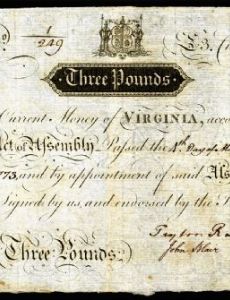 1/249 £3.
Three Pounds.
Current Money of VIRGINIA, acco
Act of Assembly Passed the 4th Day of M
775, and by appointment of said As
Signed by us, and endorsed by the T
Three Pounds
John Blair